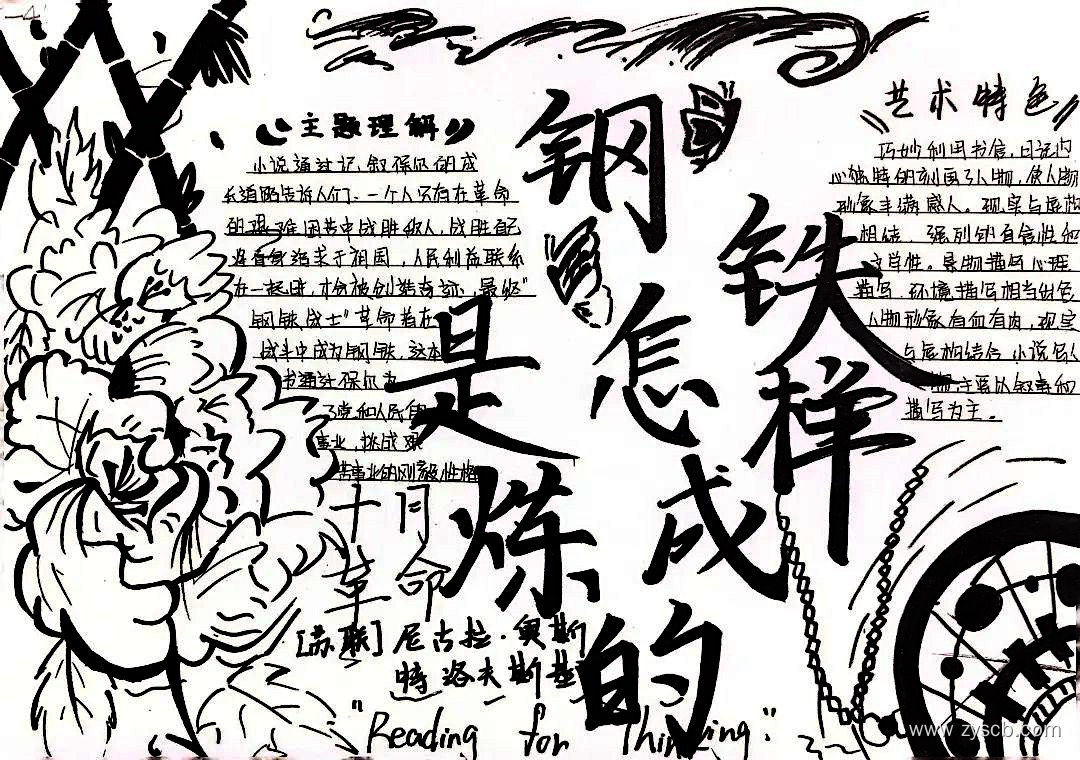 主题理解
小说通过记叙保尔的成
长道路告诉人们，一个人只有在革命
的艰难困苦中战胜敌人，战胜自己
没有自己追求于祖国，人民利益联系
在一起时，才会被创造奇迹，最终"
钢铁战士"革命者在
战斗中成为钢铁，这本
书通过保尔为
了党和人民
事业，挑战艰
苦事业的刚毅性格
钢铁
是怎样
炼成
的
十月
革命
[苏联] 尼古拉·奥斯
特洛夫斯基
"Reading for Thinking."
艺术特色
巧妙利用书信，日记内
心独特的刻画了人物，使人物
形象丰满感人。现实与虚构
相结，强烈的自信性和
文学性。景物描写心理
描写，环境描写相当出色
人物形象有血有肉，现实
与虚构结合，小说名人
物主要以叙事和
描写为主。
www.zyscb.com